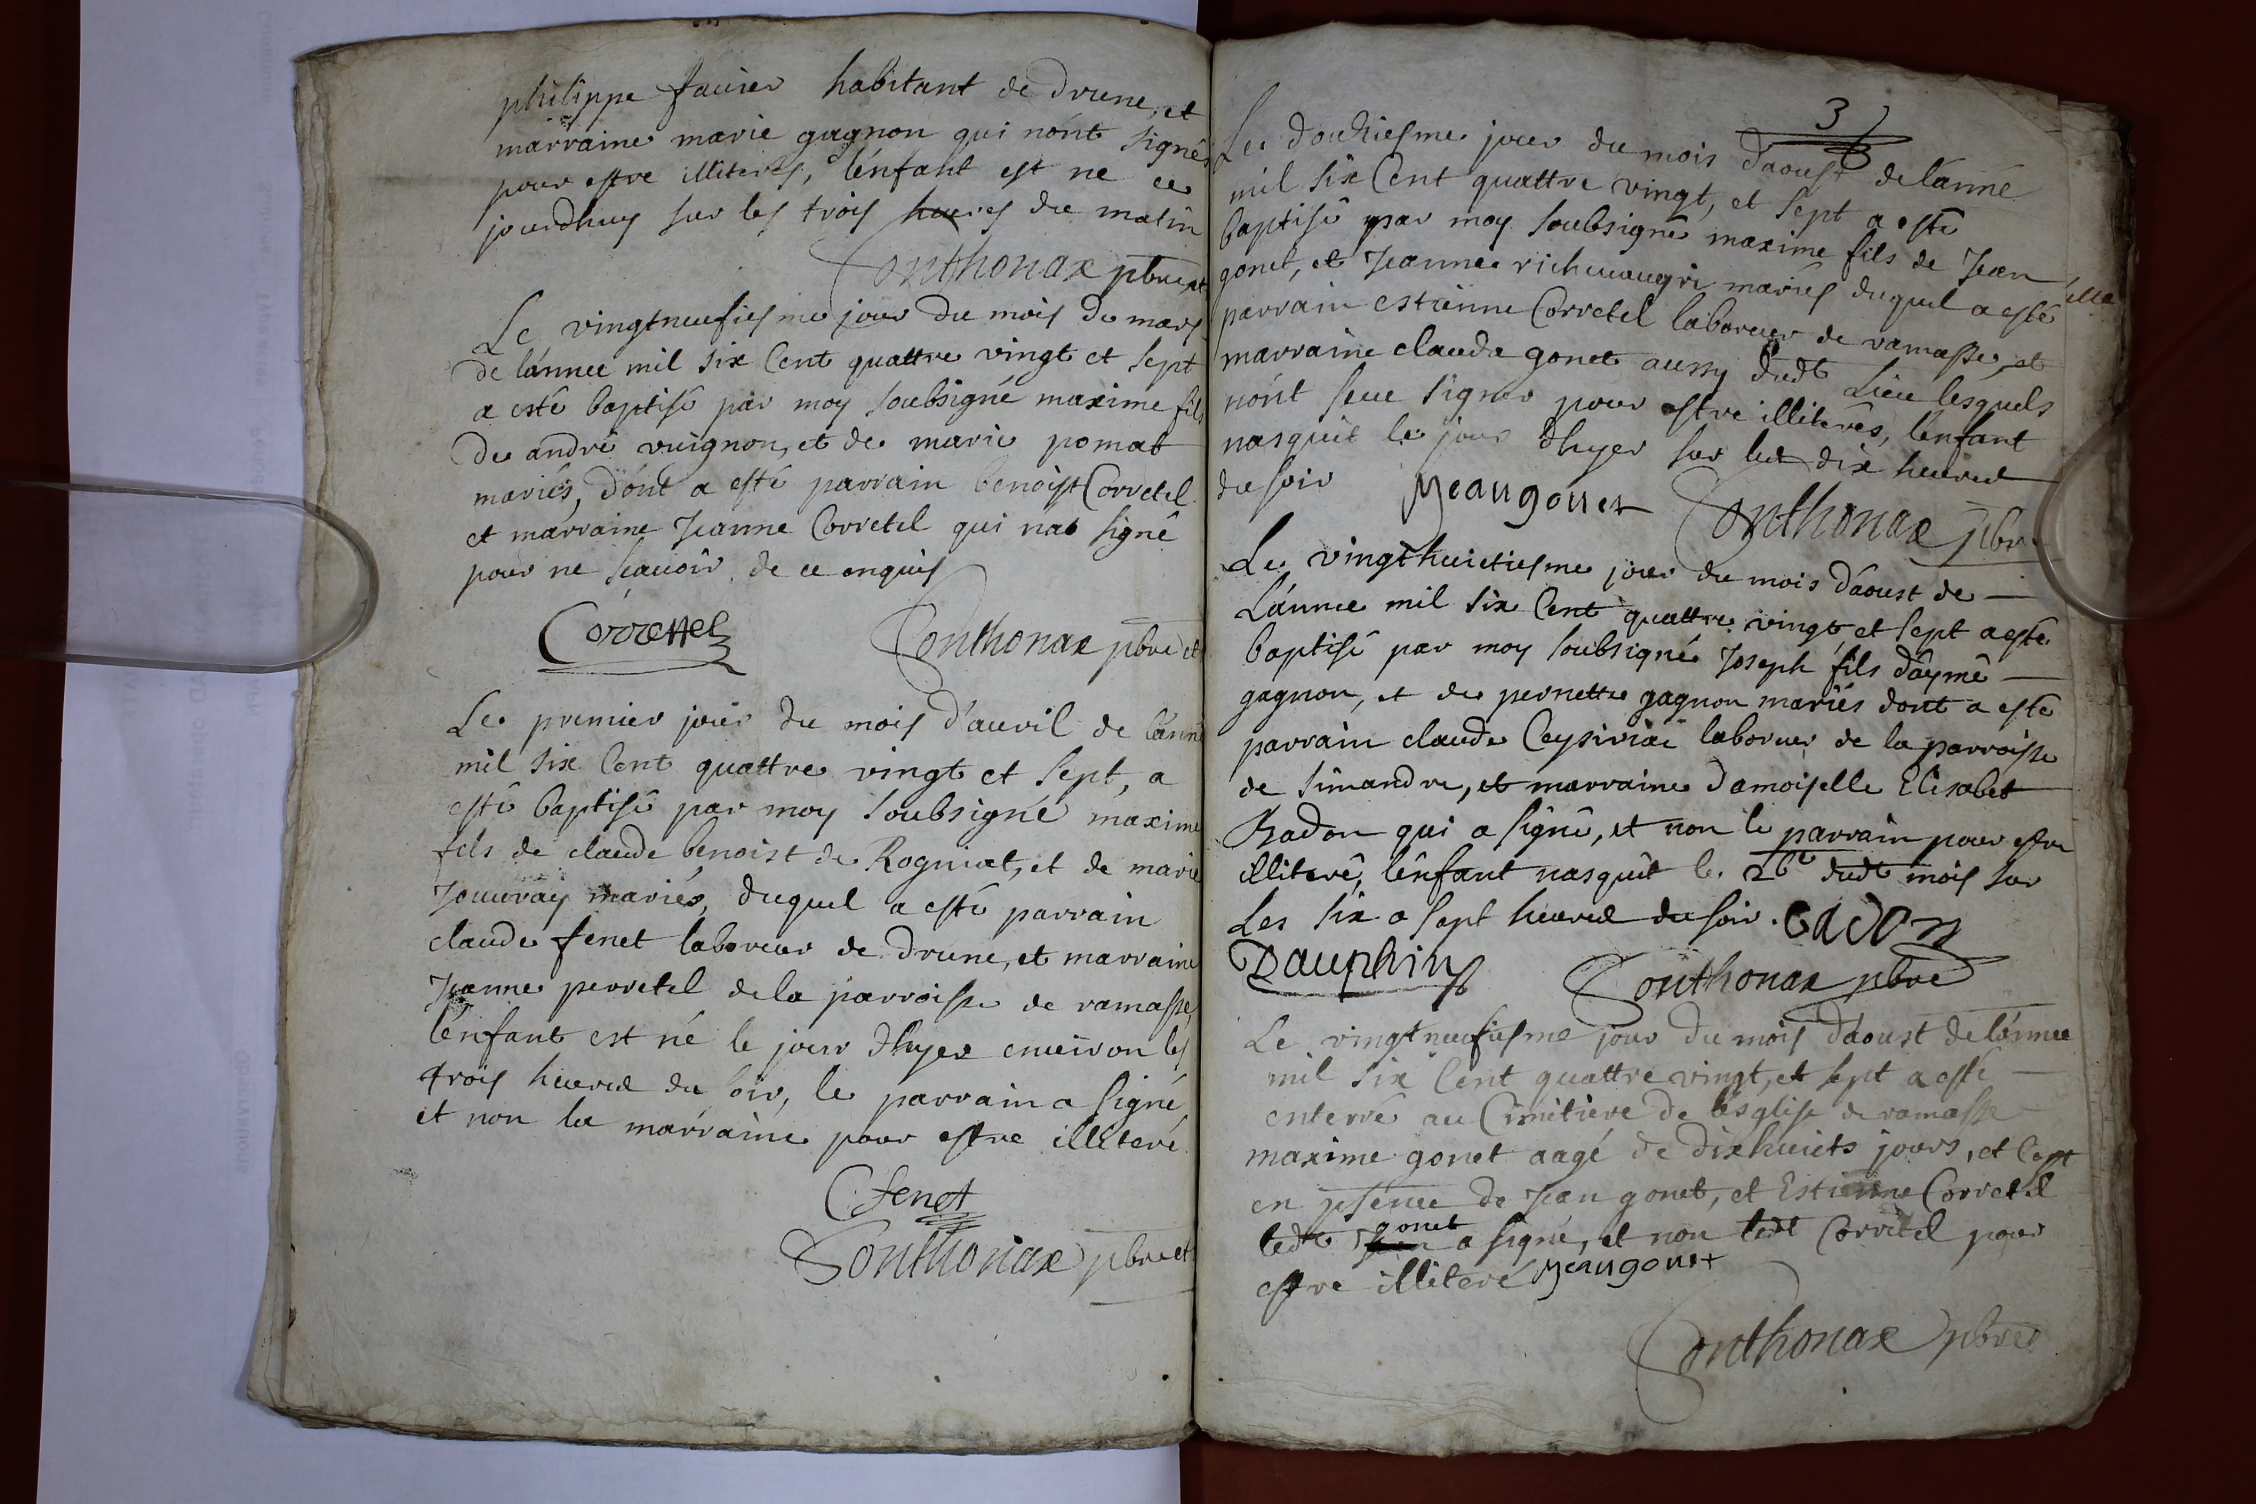 philippe faurier habitant de Drune, et
marraine marie gagnon qui nónt signés
pour estre illiterés, l'énfant est ne ce
jourdhuy sur les trois heures du matin
Sonthonax pbre et
Le vingtneufiesme jour du mois de mars
de lánnee mil six Cent quattre vingt et sept
a esté baptisé par moy soubsigné maxime fils
de andré vuignon, et de marie pomat
mariés, dónt a esté parrain benoist Corretel
et marraine Jeanne Corretel qui nas signé
pour ne scauoir de ce enquis
Correttel
Sonthonax pbre et
Le premier jour du mois d'auril de lánné
mil six Cent quattre vingt et sept, a
esté baptisé par moy soubsigné maxime
fils de claude benoist de Rogniat, et de marie
Jouuray mariés, duquel a esté parrain
claude fenet laboreur de Drune, et marraine
Jeanne perretel de la parroisse de ramasse,
lénfant est né le jour dhyer enuiron les
trois heures du soir, le parrain a signé
et non la marraine pour estre illiteré
C. fenet
Sonthonax pbre et
3
Le douziesme jour du mois d'aoust de lánné
mil six Cent quattre vingt, et sept a esté
baptisé par moy soubsigné maxime fils de Jean
gonet, et Jeanne mariés duquel a esté
parrain estienne Corretel laboreur de ramasse, et
marraine claude gonet aussy dudt Lieu lesquels
nónt sceu signer pour estre illiterés, lénfant
nasquit le jour dhyer sur les dix heures
du soir
Jeangonet
Sonthonax pbre
Le vingthuictiesme jour du mois d'aoust de
Lánnee mil six Cent quattre vingt, et sept a esté
baptisé par moy soubsigné Joseph fils d'aymé
gagnon, et de pernette gagnon mariés dont a esté
parrain claude Ceysiriai laboreur de la parroisse
de simandre, et marraine Damoiselle Elisabet
Badon qui a signé, et non le parrain pour estre
illiteré, lénfant nasquit le 26e dudt mois sur
Les six a sept heures du soir. Badon
Dauphin
Sonthonax pbre
Le vingtneufiesme jour du mois d'aoust de lánnee
mil six Cent quattre vingt, et sept a esté
enterré au Cimitiere de l'ésglise de ramasse
maxime gonet aagé de dixhuicts jours, et Cept
en psence de Jean gonet, et Estienne Corretel
ledt gonet a signé, et non ledt Corretel pour
estre illiteré Jeangonet
Sonthonax pbre